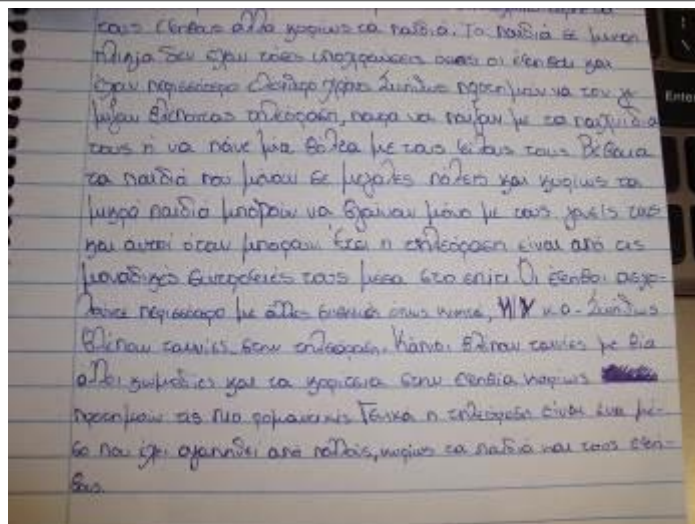 τους έφηβους αλλά κυρίως τα παιδιά. Τα παιδιά σε μικρή
ηλικία δεν έχουν τόσες υποχρεώσεις όσες οι έφηβοι και
έχουν περισσότερο ελεύθερο χρόνο. Συνήθως προτιμούν να τον γε-
μίζουν βλέποντας τηλεόραση, παρά να παίζουν με τα παιχνίδια
τους ή να πάνε μια βόλτα με τους φίλους τους. Βέβαια
τα παιδιά που μένουν σε μεγάλες πόλεις και κυρίως τα
μικρά παιδιά μπορούν να βγαίνουν μόνο με τους γονείς τους
και αυτοί όταν μπορούν. Έτσι η τηλεόραση είναι από τις
μοναδικές συντροφιές τους μέσα στο σπίτι. Οι έφηβοι ασχο-
λούνται περισσότερο με άλλες συσκευές όπως κινητά, Η/Υ κ.α. Συνήθως
βλέπουν ταινίες στην τηλεόραση. Κάποιοι βλέπουν ταινίες με βία
άλλοι κωμωδίες και τα κορίτσια στην εφηβεία κυρίως
προτιμούν τις πιο ρομαντικές. Γενικά η τηλεόραση είναι ένα μέ-
σο που έχει αγαπηθεί από πολλούς, κυρίως τα παιδιά και τους έφη-
βους.